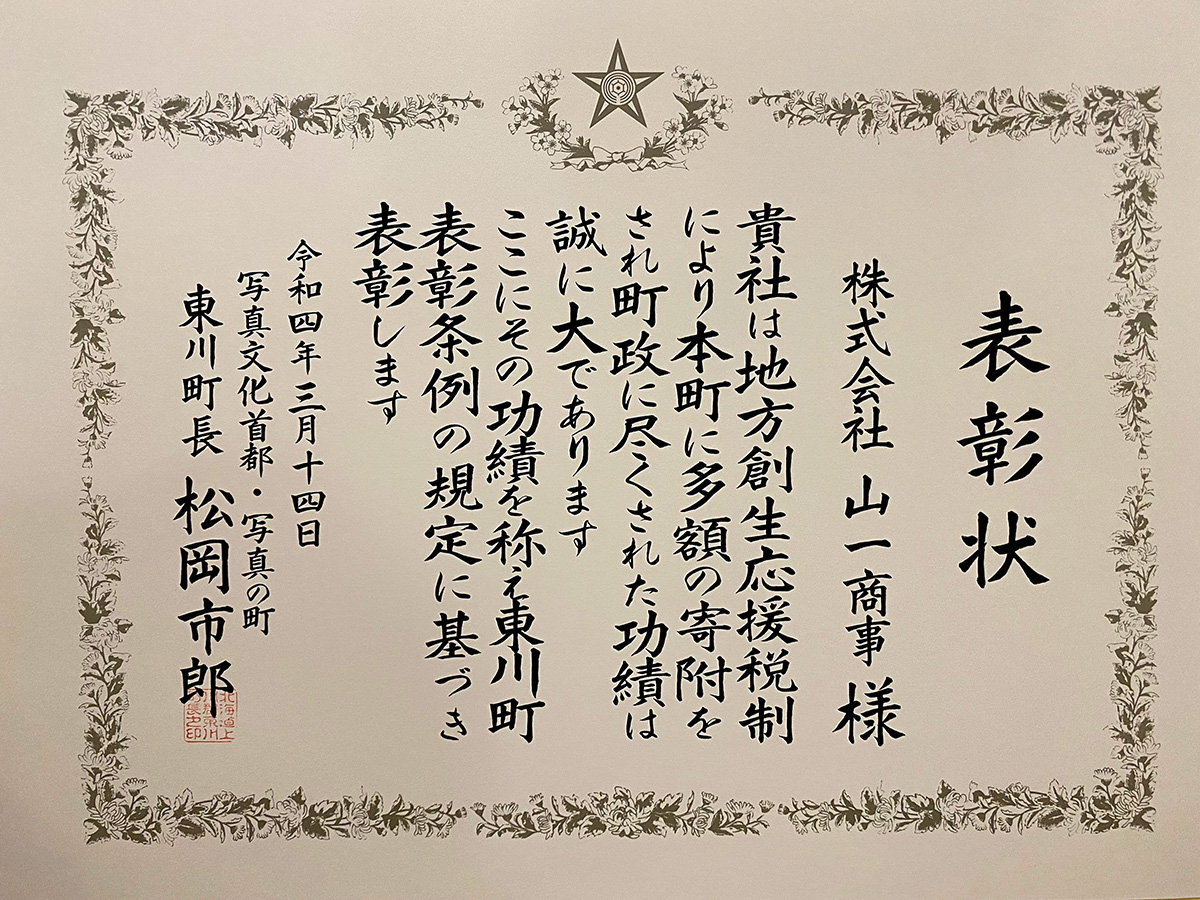 表彰状
株式会社 山一商事 様
貴社は地方創生応援税制
により本町に多額の寄附を
され町政に尽くされた功績は
誠に大であります
ここにその功績を称え東川町
表彰条例の規定に基づき
表彰します
令和四年三月十四日
写真文化首都・写真の町
東川町長 松岡市郎